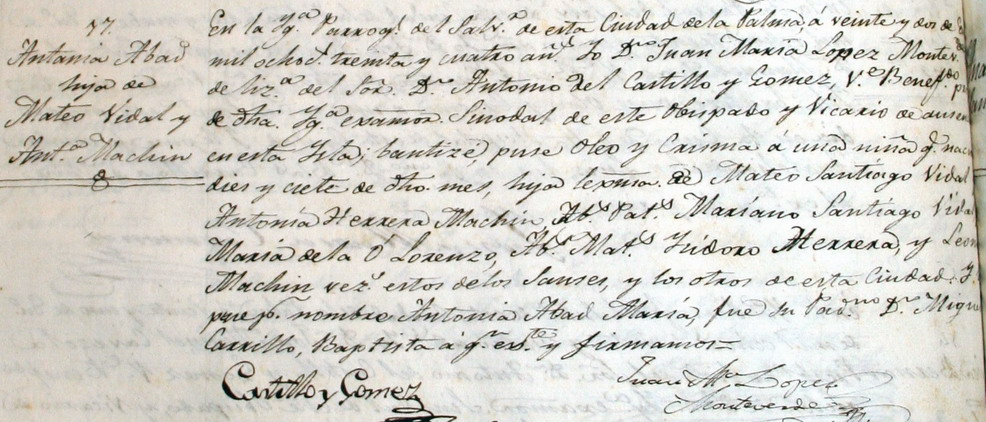 77.
Antania Abad
hija de
Mateo Vidal y
Ant.ª Machin
En la Yg.ª Parroq.l del Salv.r de esta Ciudad dela Palma, á veinte y dos de
mil ochoc.s treinta y cuatro añ.s Yo D.n Juan María Lopez Montev.
de liz.ª del Sor. D.n Antonio del Castillo y Gomez, V.e Benef.do
de dha. Yg.ª examor. Sinodal de este Obispado y Vicario de
en esta Isla; bautizé, puse Oleo y Crisma á una niña q.e nac
dies y ciete de dho. mes, hija lexma. de Mateo Santiago Vidal
Antonia Herrera Machin, Ab.s Pat.s Mariano Santiago Vida
María de la O Lorenzo, Ab.s Mat.s Ysidoro Herrera, y Leon
Machin vez.s estos delos Sauses, y los otros de esta Ciudad.
puse p.r nombre Antonia Abad María, fue su Pad.no D.n Migu
Carrillo, Baptista á q.n adv.te y firmamos=
Castillo y Gomez
Juan M.ª Lopez
Monteverde